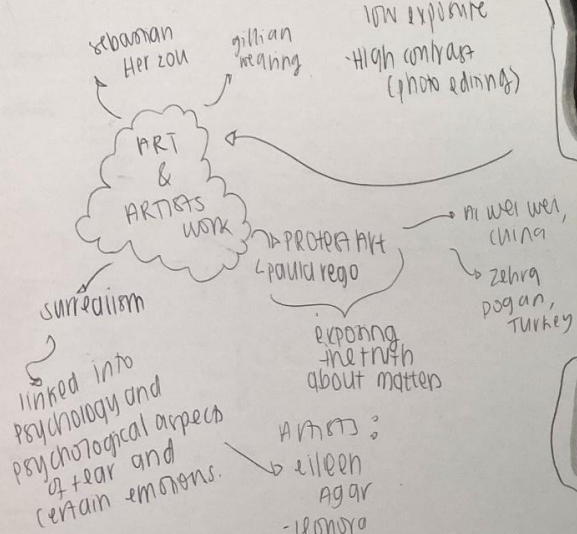 sebastian
Herzou
gillian
wearing
low exposure
-High contrast
(photo editing)
ART
&
ARTISTS
WORK
PROTEST ART
paula rego
ai wei wei,
china
zehra
Dogan,
Turkey
exposing
the truth
about matters
surrealism
linked into
psychology and
psychological aspects
of fear and
certain emotions.
Artists:
eileen
Agar
-leonora